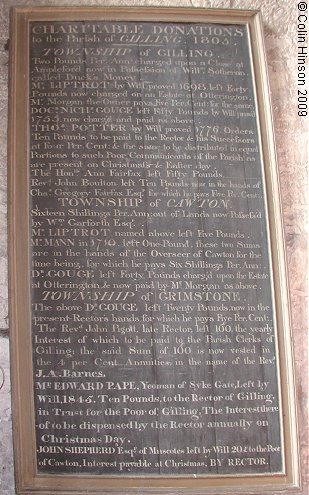 CHARITABLE DONATIONS
to the Parish of GILLING. 1805.
TOWNSHIP of GILLING.
Two Pounds Per Ann: charged upon a Close at
Ampleford now in Possession of Willm. Sotheran
called Duck's Money.
Mr. LIPTROT by Will proved 1698 left Forty
Pounds now charged on an Estate at Otterington.
Mr. Morgan the Owner pays Five Per Cent: for the same
DOCr. NICHs. GOUGE left Fifty Pounds by Will proved
1753. now charged and paid as above.
THOs. POTTER by Will proved 1776. Orders
Ten Pounds to be paid to the Rector & his Successors
at Four Per Cent: & the same to be distributed in equal
Portions to such Poor Communicants of the Parish as
are present on Christmas & Easter day.
The Honble. Ann Fairfax left Fifty Pounds.
Revd. John Boulton left Ten Pounds now in the hands of
Chas. Gregory Fairfax Esqr. for which he pays Five Per Cent.
TOWNSHIP of CAWTON.
Sixteen Shillings Per Ann: out of Lands now Possessed
by Wm. Garforth Esqr.
Mr. LIPTROT named above left Five Pounds.
Mr. MANN in 1710. left One Pound, these two Sums
are in the hands of the Overseer of Cawton for the
time being, for which he pays Six Shillings Per Ann:
Dr. GOUGE left Forty Pounds charg'd upon the Estate
at Otterington & now paid by Mr. Morgan as above.
TOWNSHIP of GRIMSTONE.
The above Dr. GOUGE left Twenty Pounds now in the
present Rectors hands for which he pays Five Per Cent.
The Revd. John Pigott, late Rector, left 100, the yearly
Interest of which to be paid to the Parish Clerks of
Gilling; the said Sum of 100 is now vested in
the 4 per Cent. Annuities, in the name of the Revd.
J. A. Barnes.
Mr EDWARD PAPE, Yeoman of Syke Gate, Left by
Will, 1845. Ten Pounds, to the Rector of Gilling.
in Trust for the Poor of Gilling, The Interest here
of to be dispensed by the Rector annually on
Christmas Day.
JOHN SHEPHERD Esqr. of Muscotes left by Will 20£ to the Poor
of Cawton, Interest payable at Christmas, BY RECTOR.
© Colin Hinson 2009